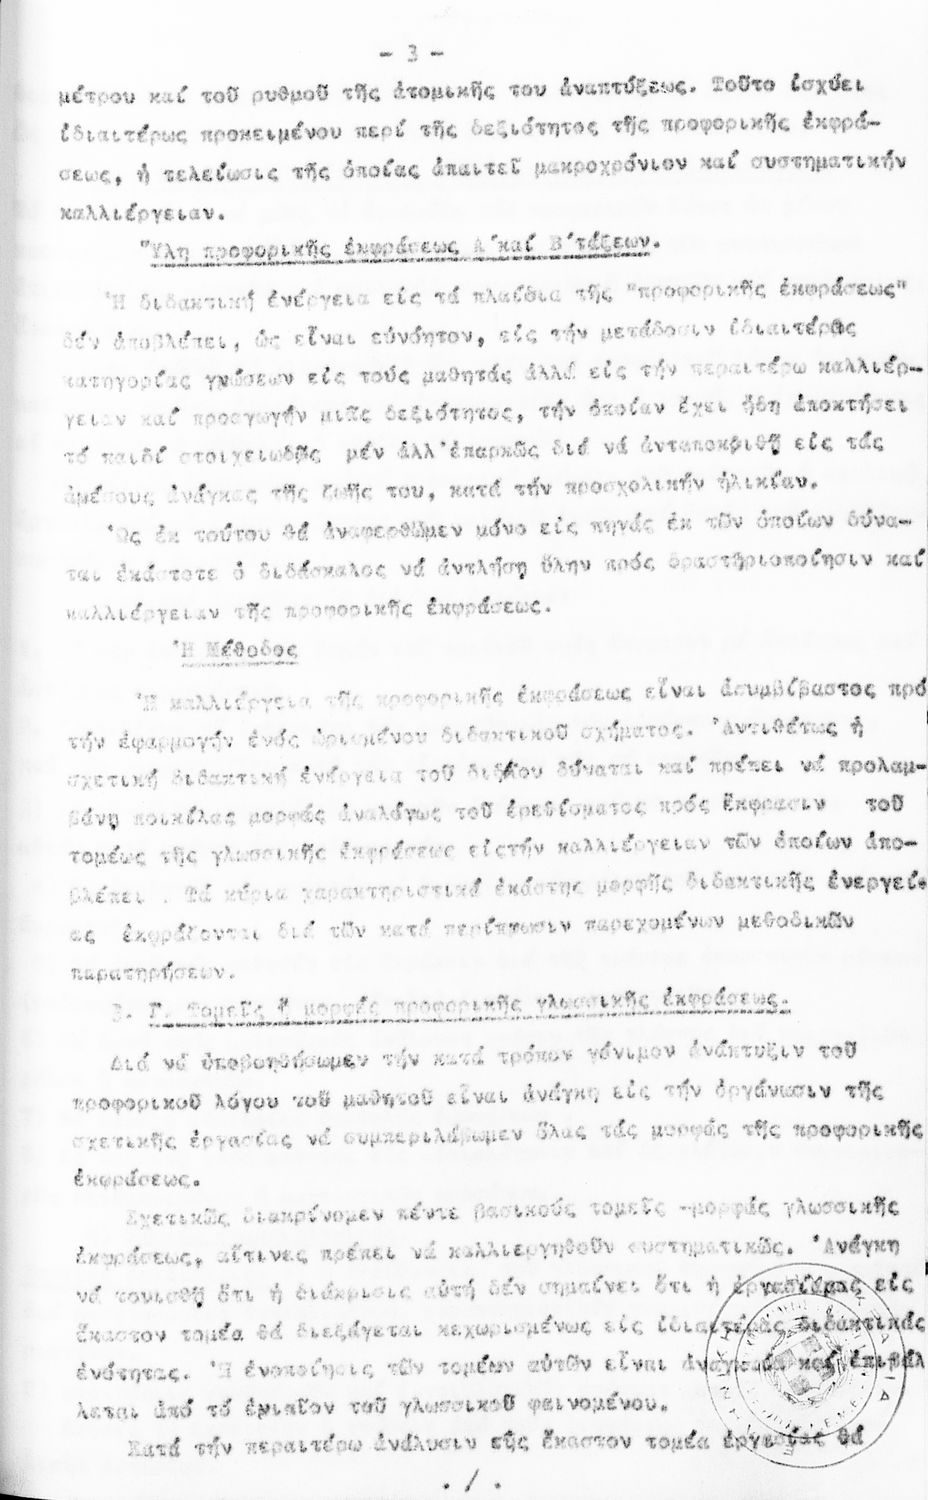 - 3 -
μέτρου καί τοῦ ρυθμοῦ τῆς ἀτομικῆς του ἀναπτύξεως. Τοῦτο ἰσχύει
ἰδιαιτέρως προκειμένου περί τῆς δεξιότητος τῆς προφορικῆς ἐκφρά-
σεως, ἡ τελείωσις τῆς ὁποίας ἀπαιτεῖ μακροχρόνιον καί συστηματικήν
καλλιέργειαν.
Ὕλη προφορικῆς ἐκφράσεως Α΄καί Β΄τάξεων.
Ἡ διδακτική ἐνέργεια είς τά πλαίσια τῆς "προφορικῆς ἐκφράσεως"
δέν ἀποβλέπει, ὡς εἶναι εὐνόητον, είς τήν μετάδοσιν ἰδιαιτέρας
κατηγορίας γνώσεων είς τούς μαθητάς ἀλλά είς τήν περαιτέρω καλλιέρ-
γειαν καί προαγωγήν μιᾶς δεξιότητος, τήν ὁποίαν ἔχει ἤδη ἀποκτήσει
τό παιδί στοιχειωδῶς μέν ἀλλ'ἐπαρκῶς διά νά ἀνταποκριθῇ είς τάς
ἀμέσους ἀνάγκας τῆς ζωῆς του, κατά τήν προσχολικήν ἡλικίαν.
Ὡς ἐκ τούτου θά ἀναφερθῶμεν μόνο είς πηγάς ἐκ τῶν ὁποίων δύνα-
ται ἑκάστοτε ὁ διδάσκαλος νά ἀντλήσῃ ὕλην πρός δραστηριοποίησιν καί
καλλιέργειαν τῆς προφορικῆς ἐκφράσεως.
Ἡ Μέθοδος
Ἡ καλλιέργεια τῆς προφορικῆς ἐκφράσεως εἶναι ἀσυμβίβαστος πρό
τήν ἐφαρμογήν ἑνός ὡρισμένου διδακτικοῦ σχήματος. Ἀντιθέτως ἡ
σχετική διδακτική ἐνέργεια τοῦ δύναται καί πρέπει νά προλαμ-
βάνῃ ποικίλας μορφάς ἀναλόγως τοῦ ἐρεθίσματος πρός ἔκφρασιν τοῦ
τομέως τῆς γλωσσικῆς ἐκφράσεως είςτήν καλλιέργειαν τῶν ὁποίων ἀπο-
βλέπει . Τά κύρια χαρακτηριστικά ἑκάστης μορφῆς διδακτικῆς ἐνεργεί-
ας ἐκφράζονται διά τῶν κατά περίπτωσιν παρεχομένων μεθοδικῶν
παρατηρήσεων.
Β. Γ. Τομεῖς ἤ μορφές προφορικῆς γλωσσικῆς ἐκφράσεως.
Διά νά ὑποβοηθήσωμεν τήν κατά τρόπον γόνιμον ἀνάπτυξιν τοῦ
προφορικοῦ λόγου τοῦ μαθητοῦ εἶναι ἀνάγκη είς τήν ὀργάνωσιν τῆς
σχετικῆς ἐργασίας νά συμπεριλάβωμεν ὅλας τάς μορφάς τῆς προφορικῆς
ἐκφράσεως.
Σχετικῶς διακρίνομεν πέντε βασικούς τομεῖς -μορφάς γλωσσικῆς
ἐκφράσεως, αἵτινες πρέπει νά καλλιεργηθοῦν συστηματικῶς. Ἀνάγκη
νά τονισθῇ ὅτι ἡ διάκρισις αὐτή δέν σημαίνει ὅτι ἡ είς
ἕκαστον τομέα θά διεξάγεται κεχωρισμένως είς ἰδιαιτέρας διδακτικάς
ἑνότητας. Ἡ ἑνοποίησις τῶν τομέων αὐτῶν εἶναι ἀναγκαία καί ἐπιβάλ
λεται ἀπό τό ἑνιαῖον τοῦ γλωσσικοῦ φαινομένου.
Κατά τήν περαιτέρω ἀνάλυσιν είς ἕκαστον τομέα ἐργασίας θά
. / .